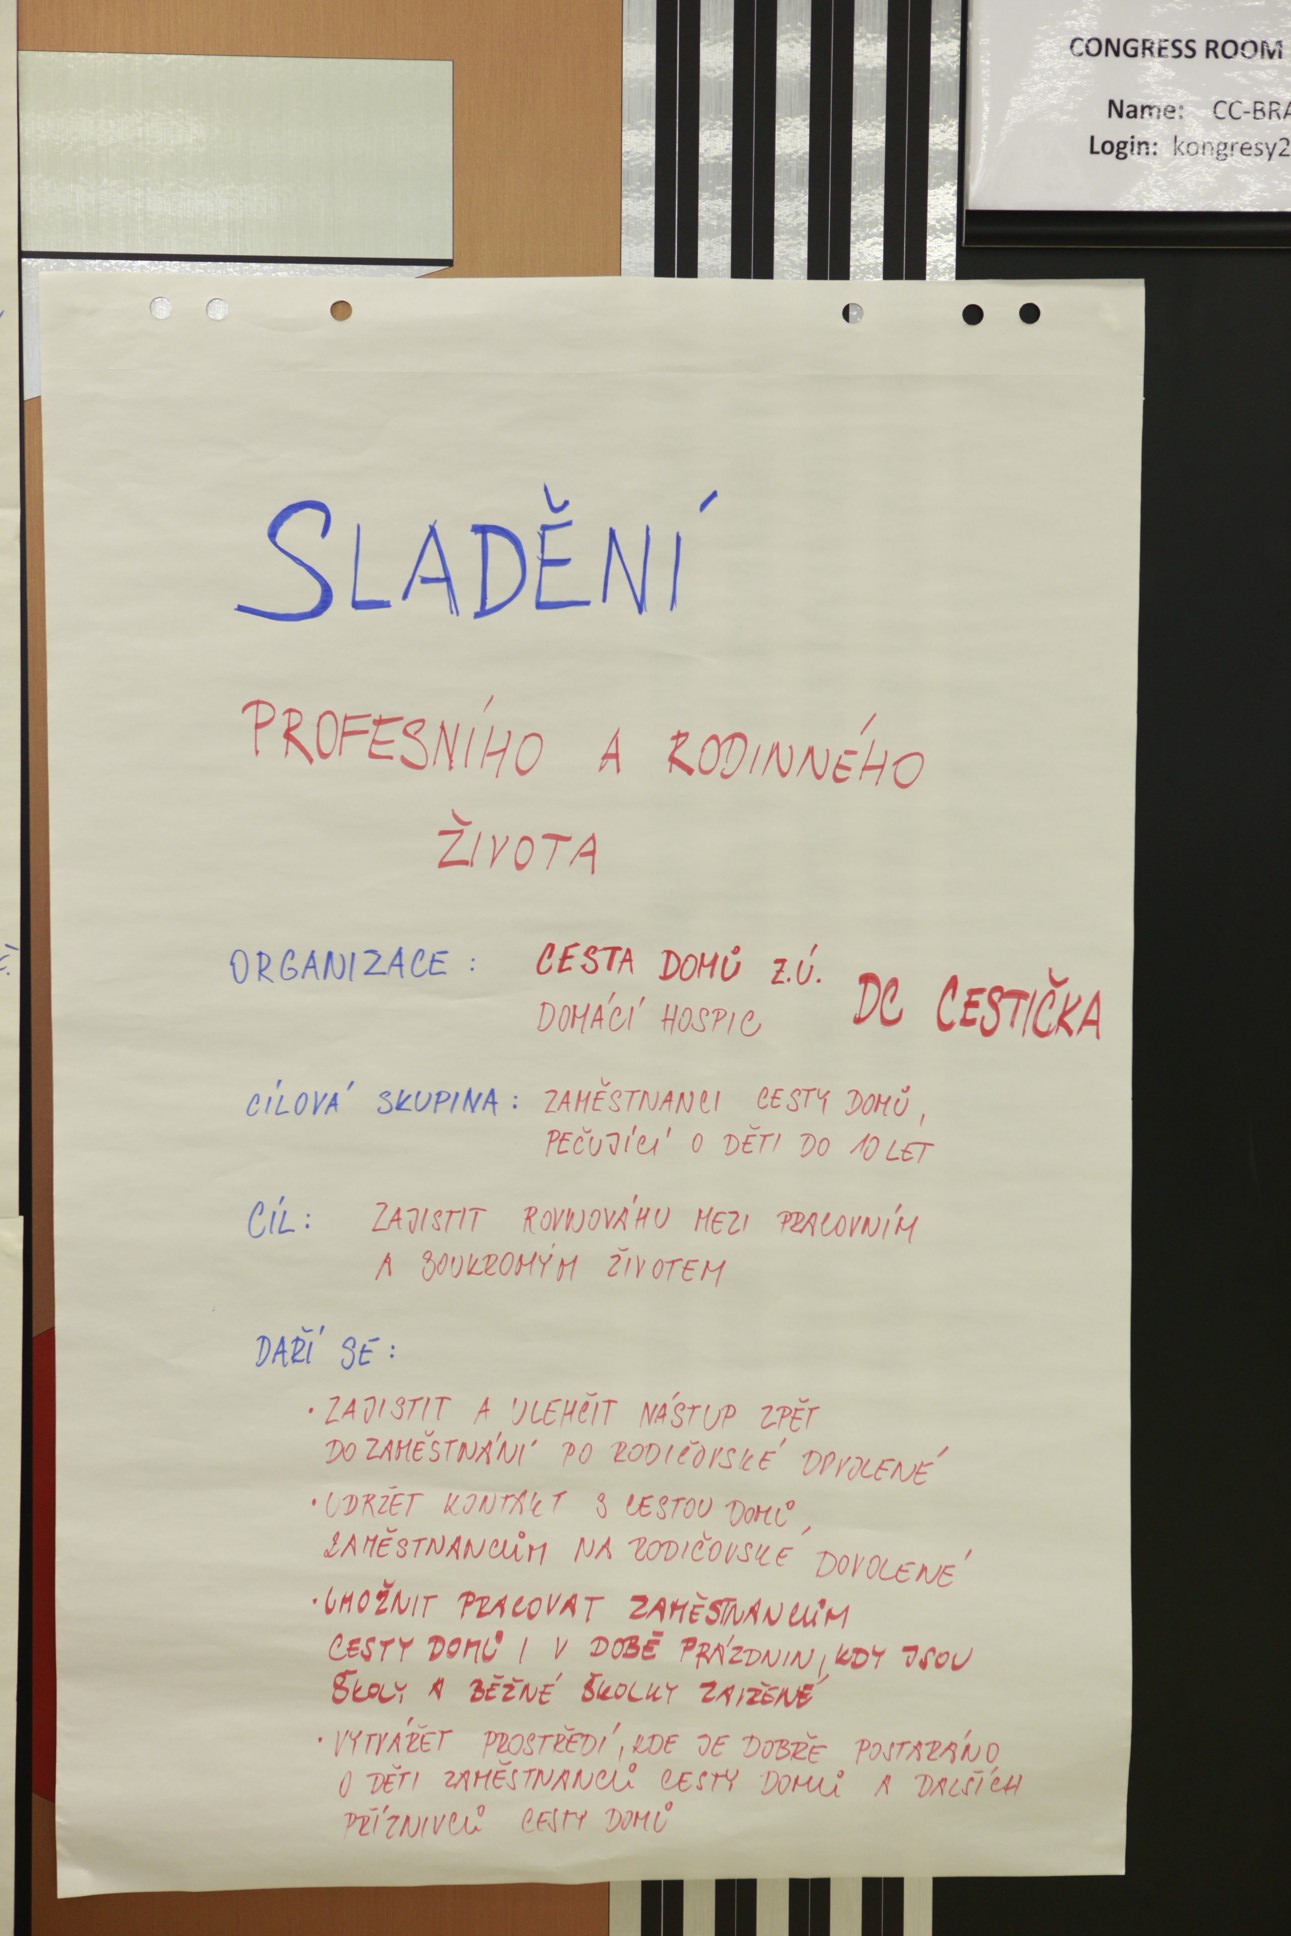 CONGRESS ROOM
Name: CC-BRA
Login: kongresy2
SLADĚNÍ
PROFESNÍHO A RODINNÉHO
ŽIVOTA
ORGANIZACE: CESTA DOMŮ Z.Ú.
DOMÁCÍ HOSPIC
DC CESTIČKA
CÍLOVÁ SKUPINA: ZAMĚSTNANCI CESTY DOMŮ,
PEČUJÍCÍ O DĚTI DO 10 LET
CÍL: ZAJISTIT ROVNOVÁHU MEZI PRACOVNÍM
A SOUKROMÝM ŽIVOTEM
DAŘÍ SE:
• ZAJISTIT A ULEHČIT NÁSTUP ZPĚT
DO ZAMĚSTNÁNÍ PO RODIČOVSKÉ DOVOLENÉ
• UDRŽET KONTAKT S CESTOU DOMŮ,
ZAMĚSTNANCŮM NA RODIČOVSKÉ DOVOLENÉ
• UMOŽNIT PRACOVAT ZAMĚSTNANCŮM
CESTY DOMŮ I V DOBĚ PRÁZDNIN, KDY JSOU
ŠKOLY A BĚŽNÉ ŠKOLKY ZAVŘENÉ
• VYTVÁŘET PROSTŘEDÍ, KDE JE DOBŘE POSTARÁNO
O DĚTI ZAMĚSTNANCŮ CESTY DOMŮ A DALŠÍCH
PŘÍZNIVCŮ CESTY DOMŮ